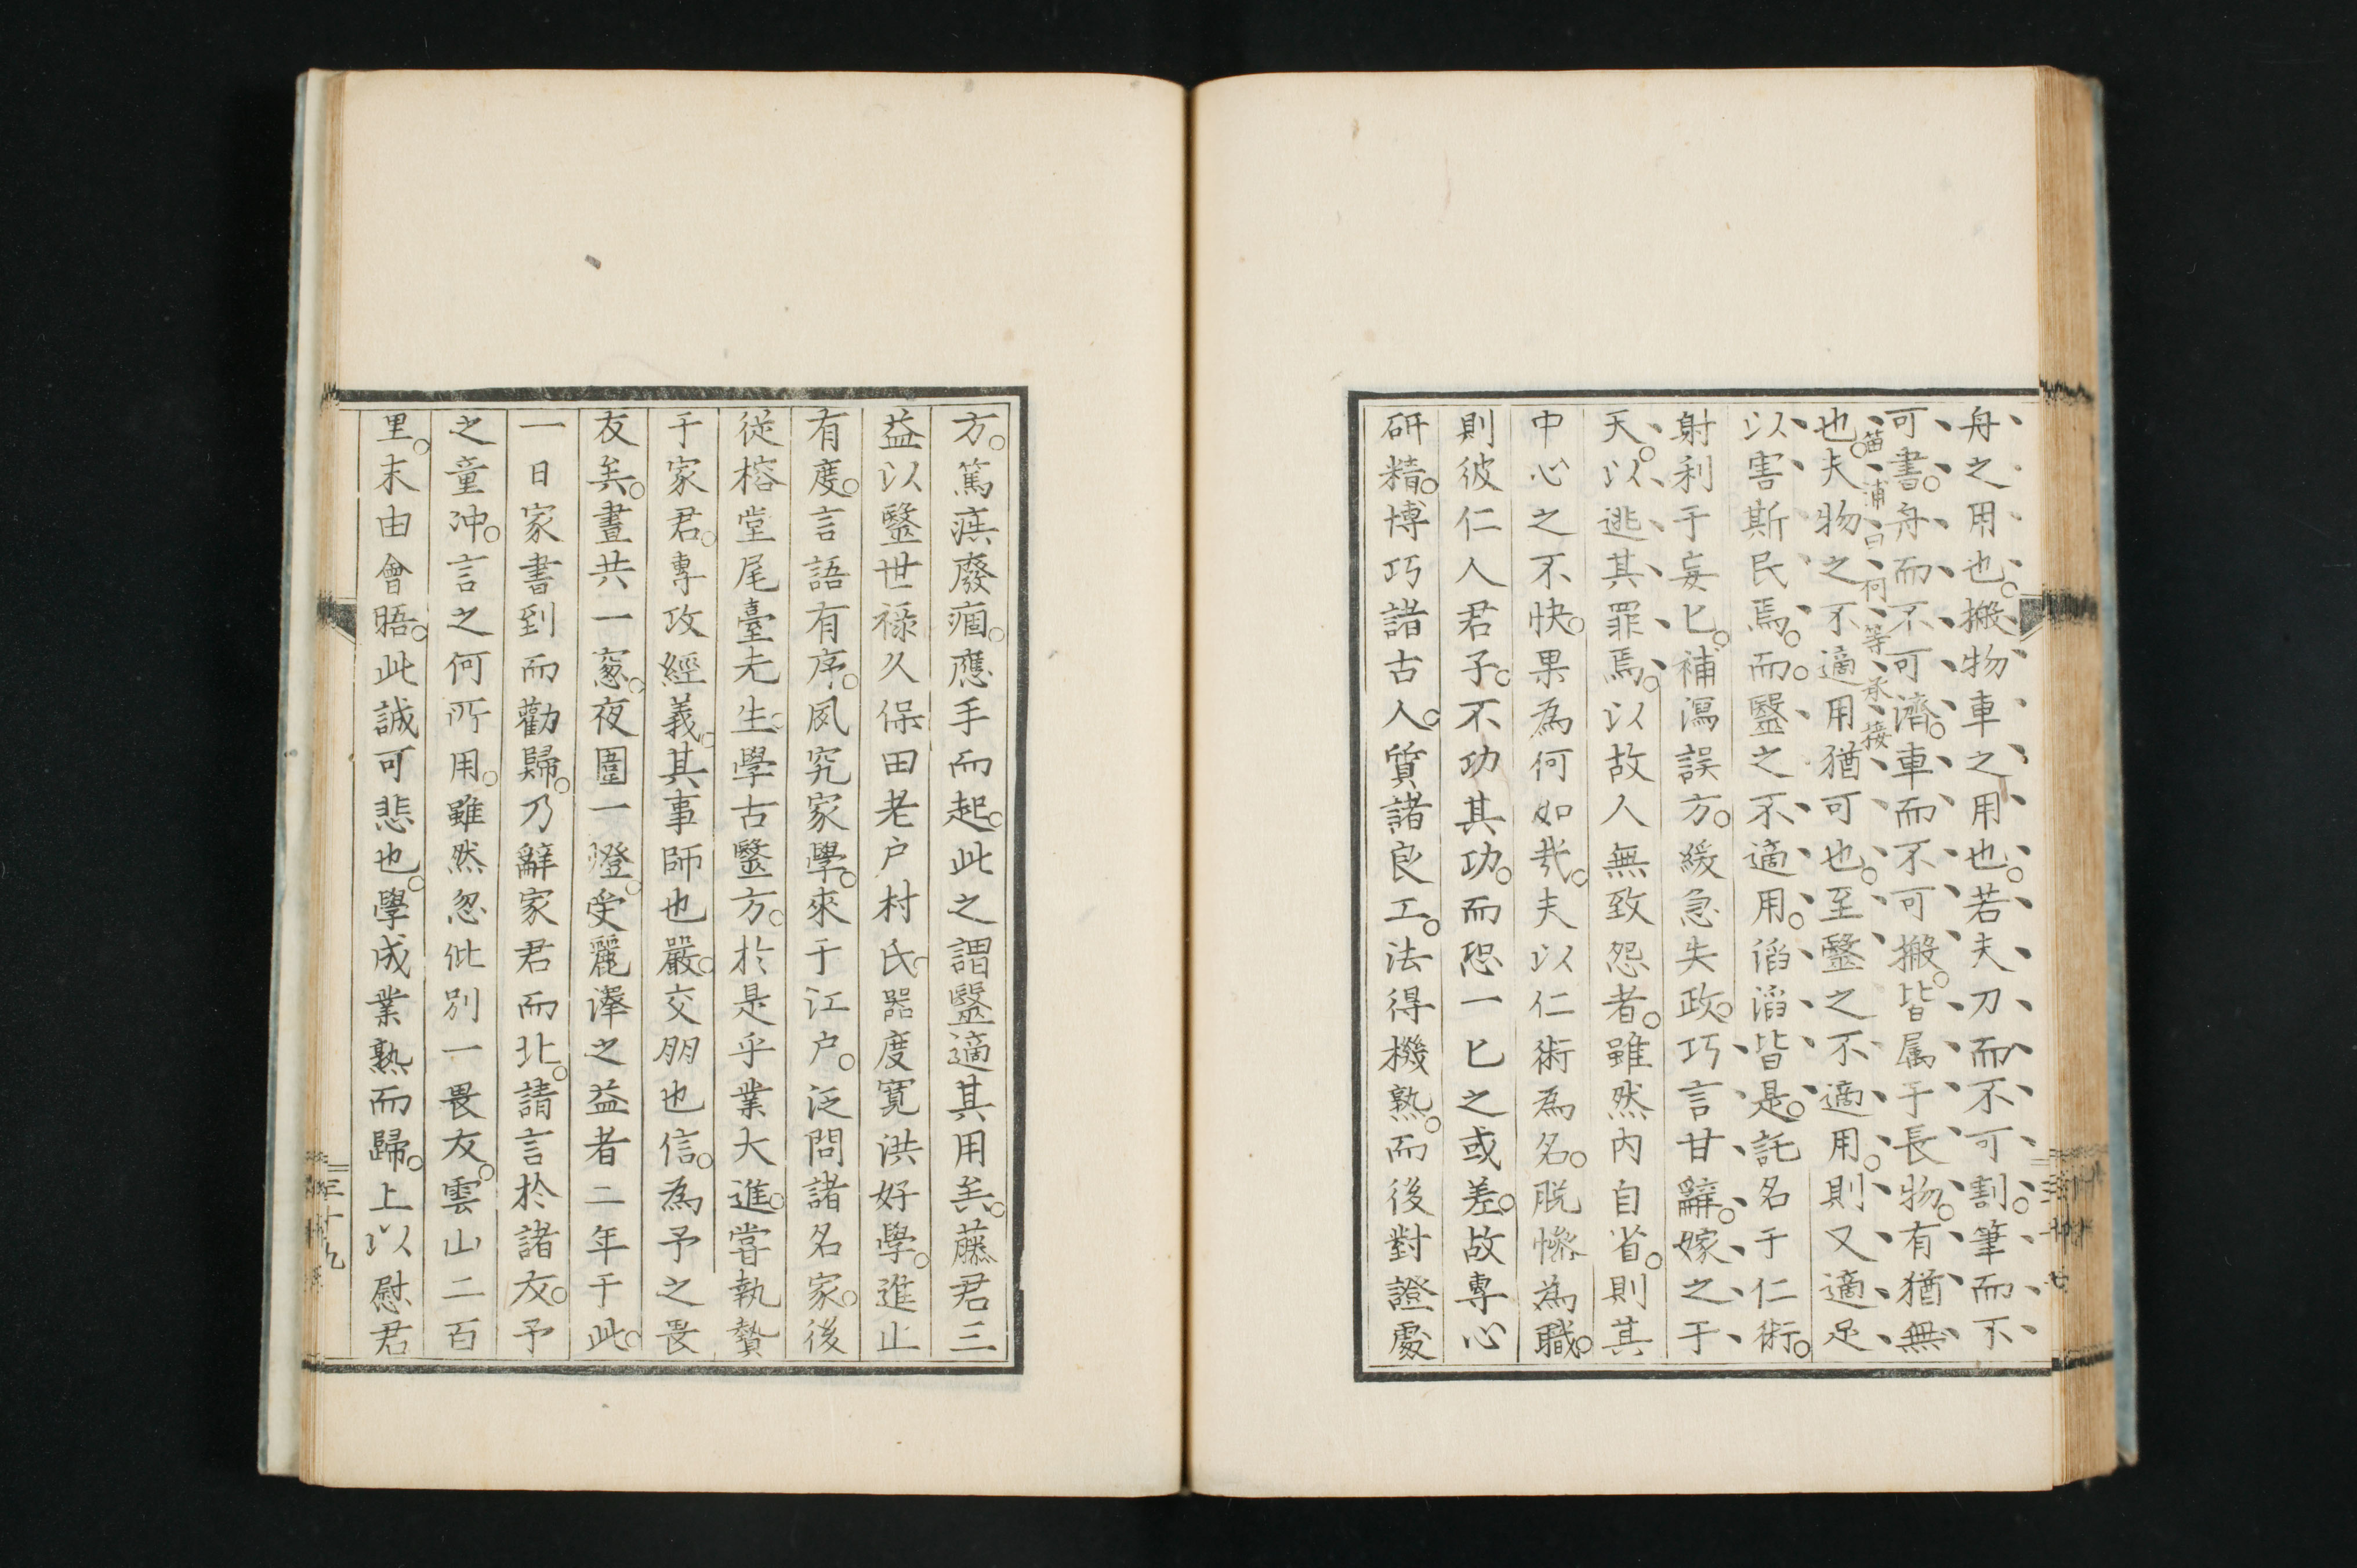 舟之用也。搬物車之用也。若夫刀而不可割。筆而不
可書。舟而不可濟。車而不可搬。皆属于長物。有猶無
苗浦曰何等承接
也。夫物之不適用猶可也。至毉之不適用。則又適足
以害斯民焉。而毉之不適用。滔滔皆是。託名于仁術。
射利于妄匕。補瀉誤方。緩急失政。巧言甘辭。嫁之于
天。以逃其罪焉。以故人無致怨者。雖然内自省。則其
中心之不快。果為何如哉。夫以仁術為名。脱惨為職。
則彼仁人君子。不功其功。而恐一匕之或差。故專心
研精。博巧諸古人。質諸良工。法得機熟。而後對證處
方。篤疾廢痼。應手而起。此之謂毉適其用矣。藤君三
益以毉世禄久保田老户村氏。器度寛洪好學。進止
有度。言語有序。夙究家學。來于江户。泛問諸名家。後
從榕堂尾臺先生。學古毉方。於是乎業大進。嘗執贄
于家君。專攻經義。其事師也嚴。交朋也信。為予之畏
友矣。晝共一窓。夜圍一燈。受麗澤之益者二年于此。
一日家書到而勸歸。乃辭家君而北。請言於諸友。予
之童冲。言之何所用。雖然忽此別一畏友。雲山二百
里。末由會晤。此誠可悲也。學成業熟而歸。上以慰君
三十九